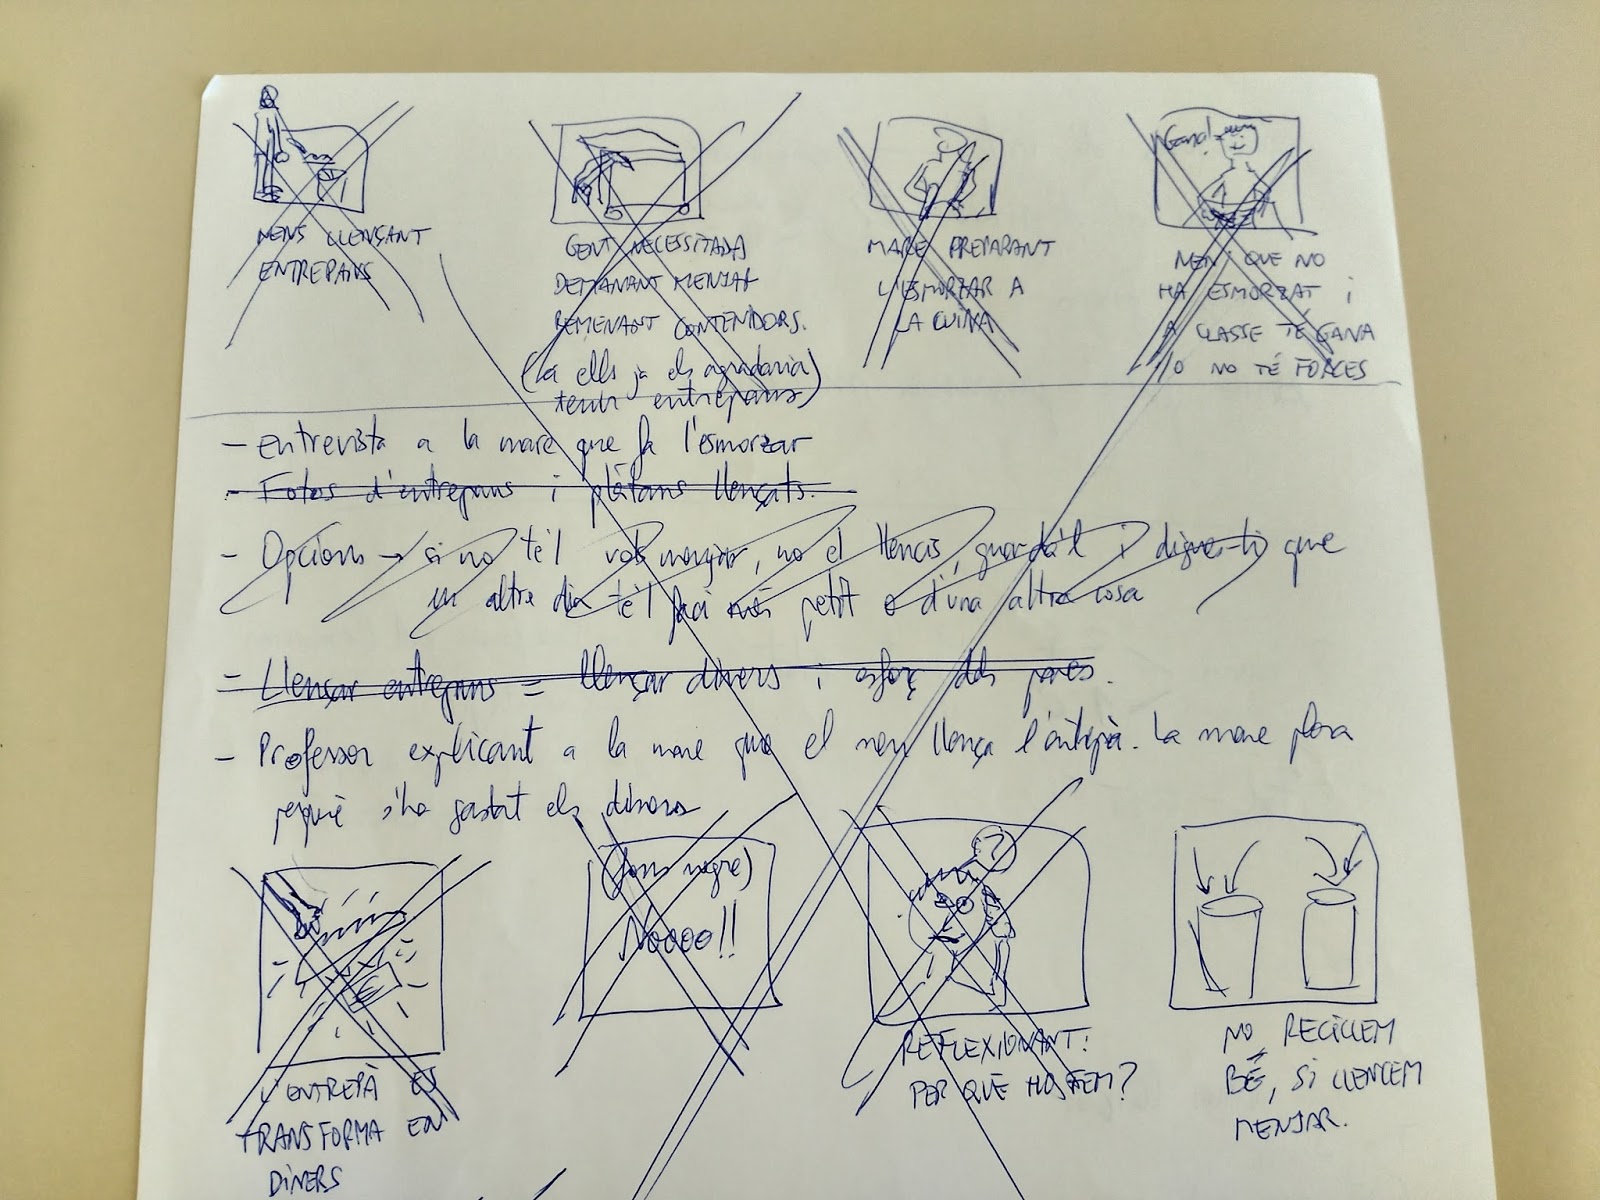 Gana!
NENS LLENÇANT
ENTREPANS
GENT NECESSITADA
DEMANANT MENJAR
REMENANT CONTENIDORS.
(a ells ja els agradaria
tenir entrepans)
MARE PREPARANT
L'ESMORZAR A
LA CUINA
NEN QUE NO
HA ESMORZAT i
A CLASSE TÉ GANA
/O NO TÉ FORCES
- Entrevista a la mare que fa l'esmorzar
- Fotos d'entrepans i plàtans llençats.
- Opcions → si no te'l vols menjar, no el llencis, guarda't'l i digue-li que
un altre dia te'l faci més petit o d'una altra cosa
= Llençar entrepans = llençar diners i esforç dels pares.
- Professor explicant a la mare que el nen llença l'entrepà. La mare plora
perquè s'ha gastat els diners
€
L'ENTREPÀ ES
TRANSFORMA EN
DINERS
(fons negre)
Noooo!!
?
REFLEXIONANT:
PER QUÈ HO FEM?
NO RECICLEM
BÉ, SI LLENCEM
MENJAR.